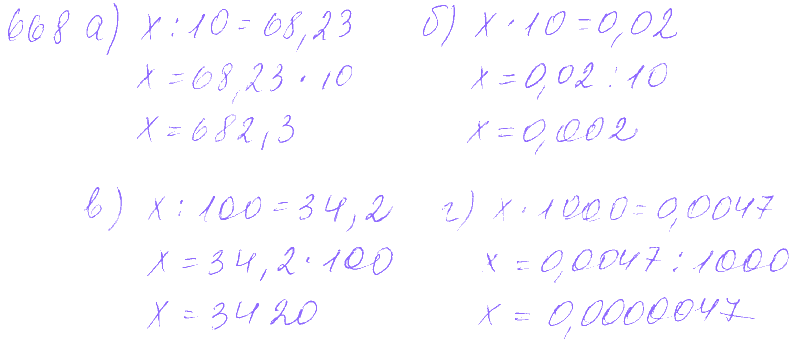 668 а) x : 10 = 68,23 б) x · 10 = 0,02
x = 68,23 · 10 x = 0,02 : 10
x = 682,3 x = 0,002
в) x : 100 = 34,2 г) x · 1000 = 0,0047
x = 34,2 · 100 x = 0,0047 : 1000
x = 3420 x = 0,0000047